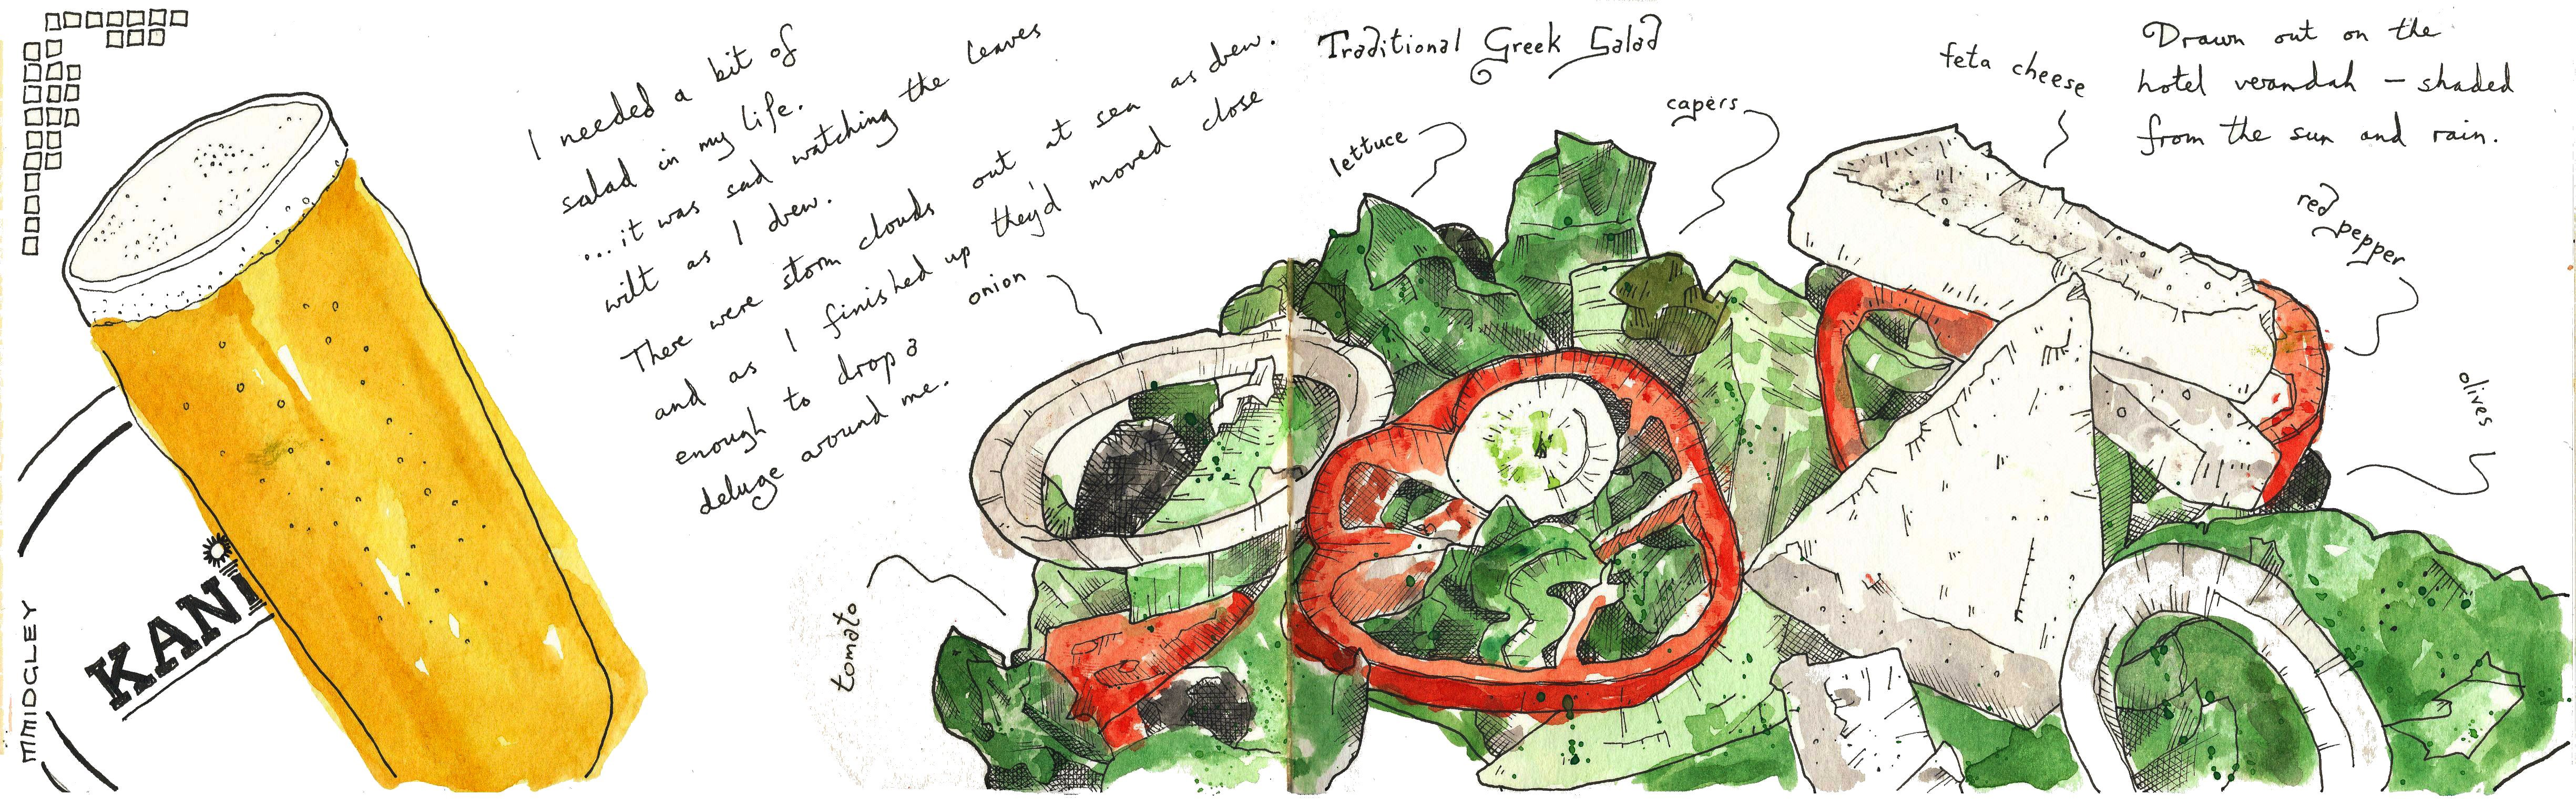 I needed a bit of
salad in my life.
...it was sad watching the leaves
wilt as I drew.
There were storm clouds out at sea as drew.
and as I finished up they'd moved close
enough to drop a
deluge around me.
Traditional Greek Salad
Drawn out on the
hotel verandah - shaded
from the sun and rain.
lettuce
capers
feta cheese
red
pepper
olives
onion
tomato
KANi
MMIDGLEY